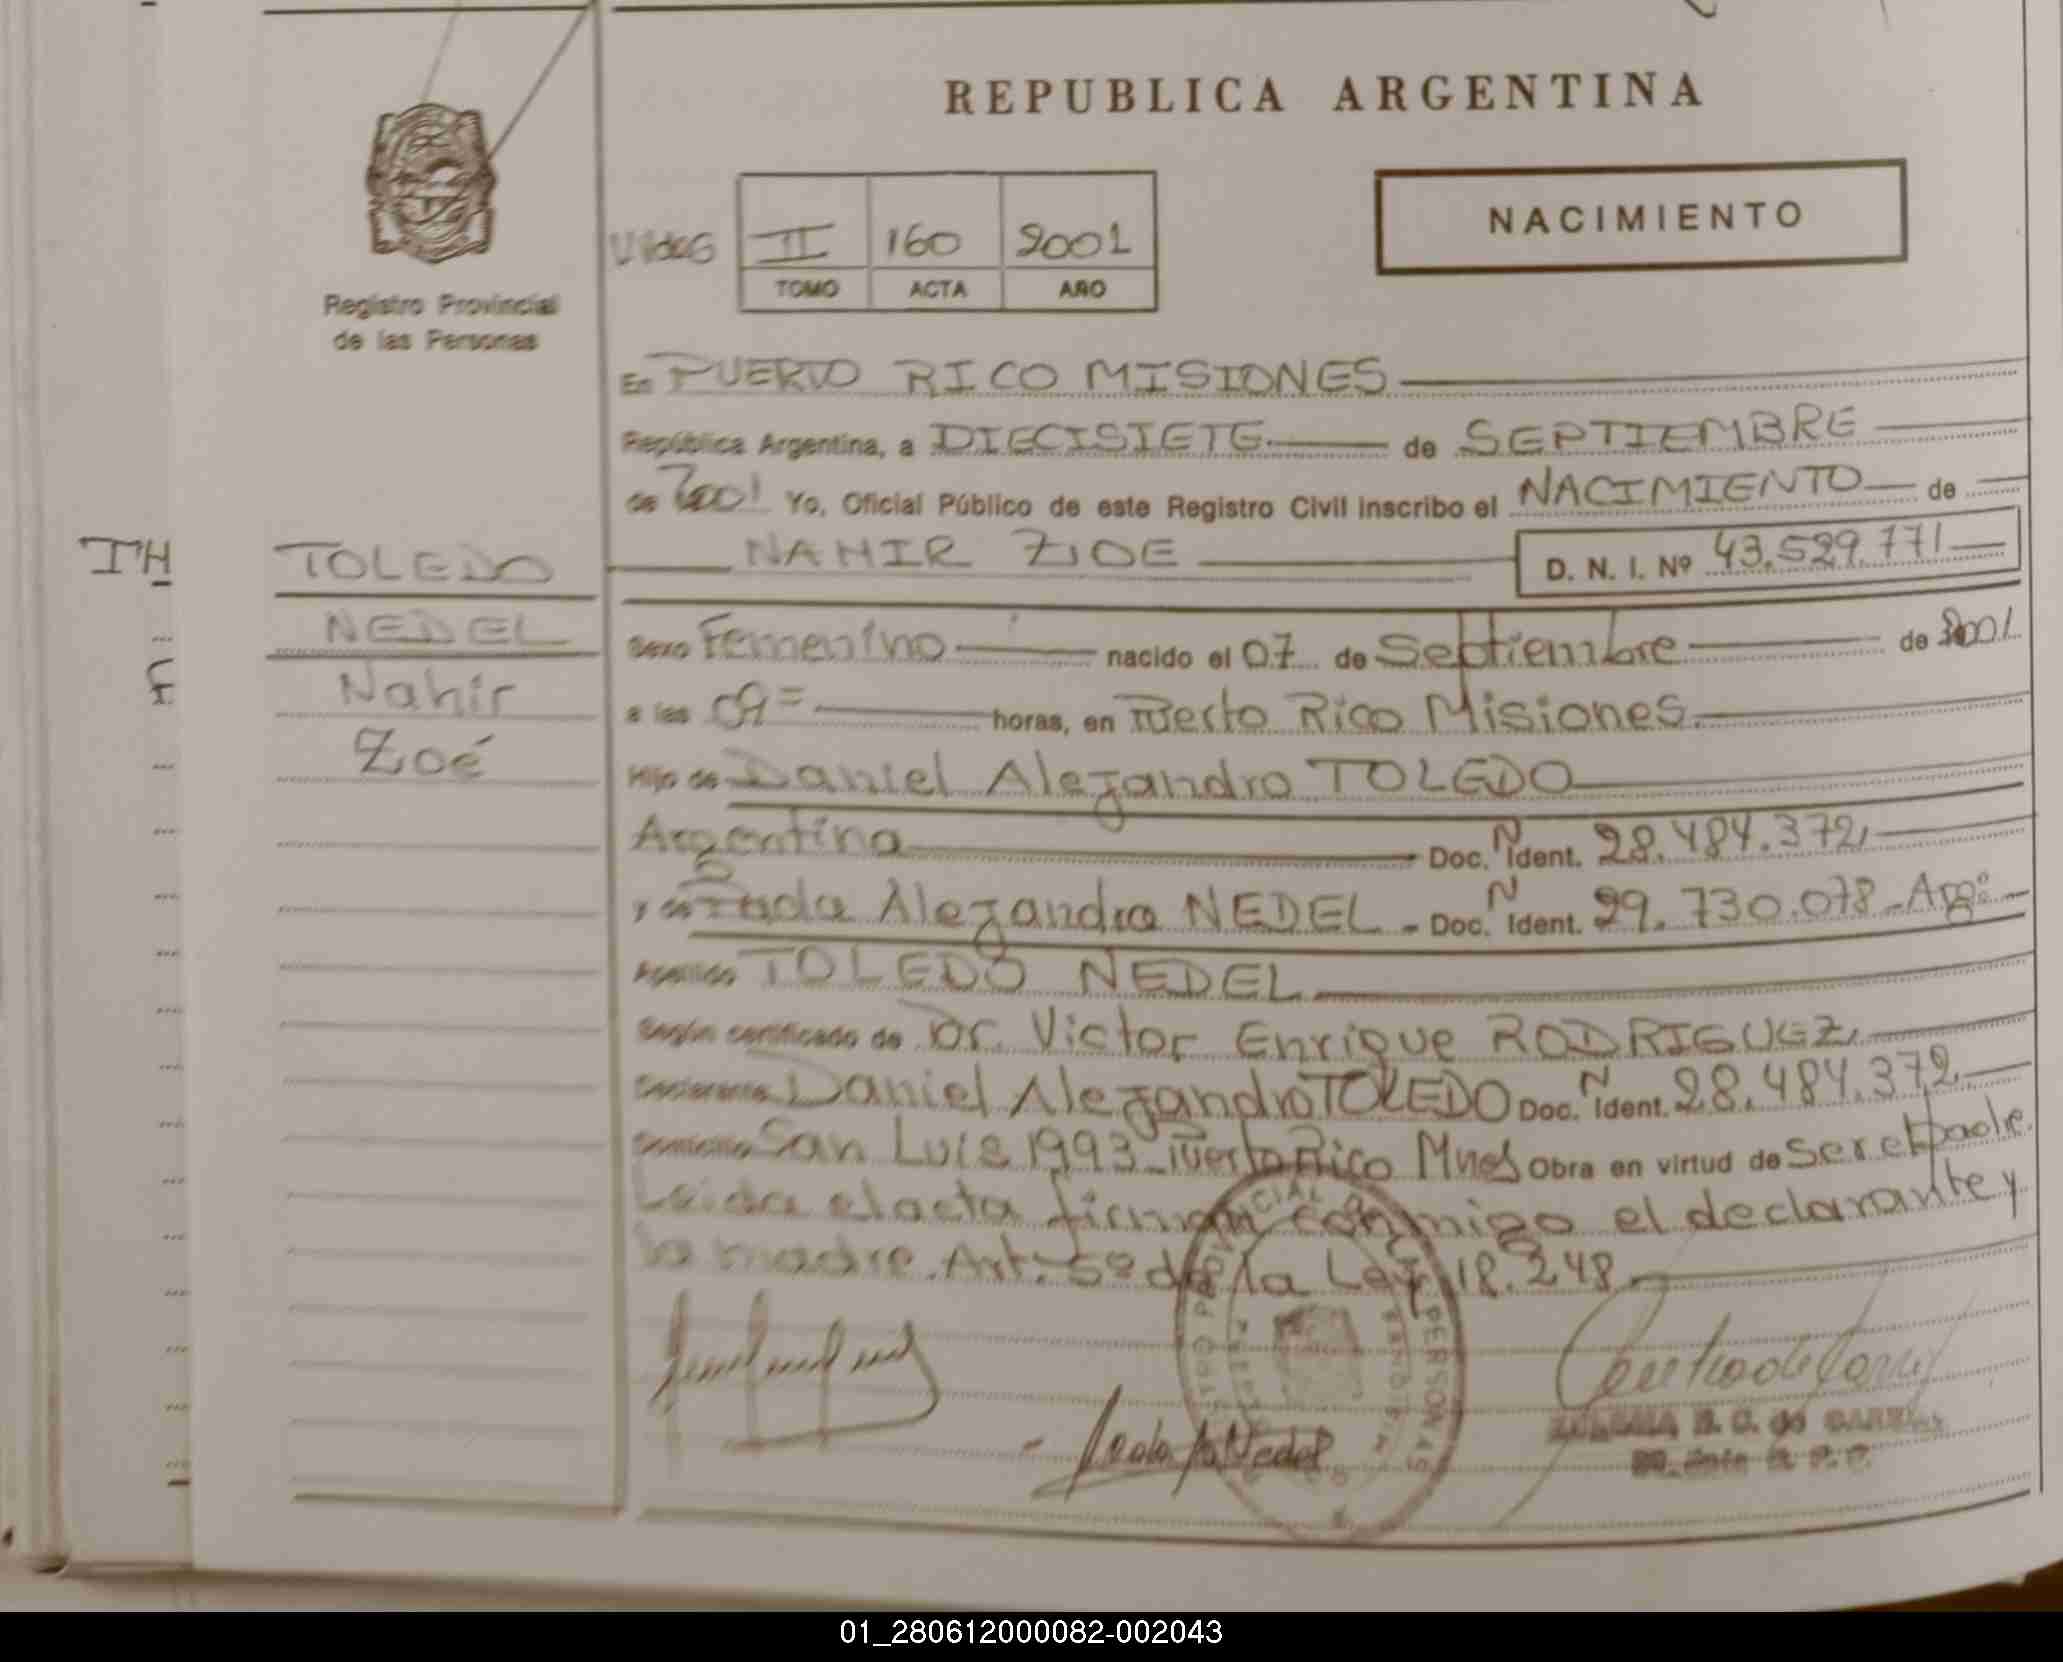 REPUBLICA ARGENTINA
NACIMIENTO
II 160 2001
TOMO ACTA AÑO
Registro Provincial
de las Personas
En PUERTO RICO MISIONES
República Argentina, a DIECISIETE de SEPTIEMBRE
de 2001 Yo, Oficial Público de este Registro Civil inscribo el NACIMIENTO de
NAHIR ZOE D. N. I. Nº 43.529.771
TOLEDO
NEDEL
Nahir
Zoé
Sexo Femenino nacido el 07 de Septiembre de 2001
a las 09= horas, en Puerto Rico Misiones
Hijo de Daniel Alejandro TOLEDO
Argentina Doc. N Ident. 28.484.372
y de Alejandra NEDEL - Doc. N Ident. 29.730.078 - Arg:
Apellido TOLEDO NEDEL
Según certificado de Dr. Victor Enrique RODRIGUEZ
Declarante Daniel Alejandro TOLEDO Doc. N Ident. 28.484.372
Domicilio San Luis 1993 - Puerto Rico Mnes Obra en virtud de ser el padre.
Leida el acta firman conmigo el declarante y
la madre. Art. 5º de la Ley 18.248
PROVINCIAL DE LAS PERSONAS
01_280612000082-002043